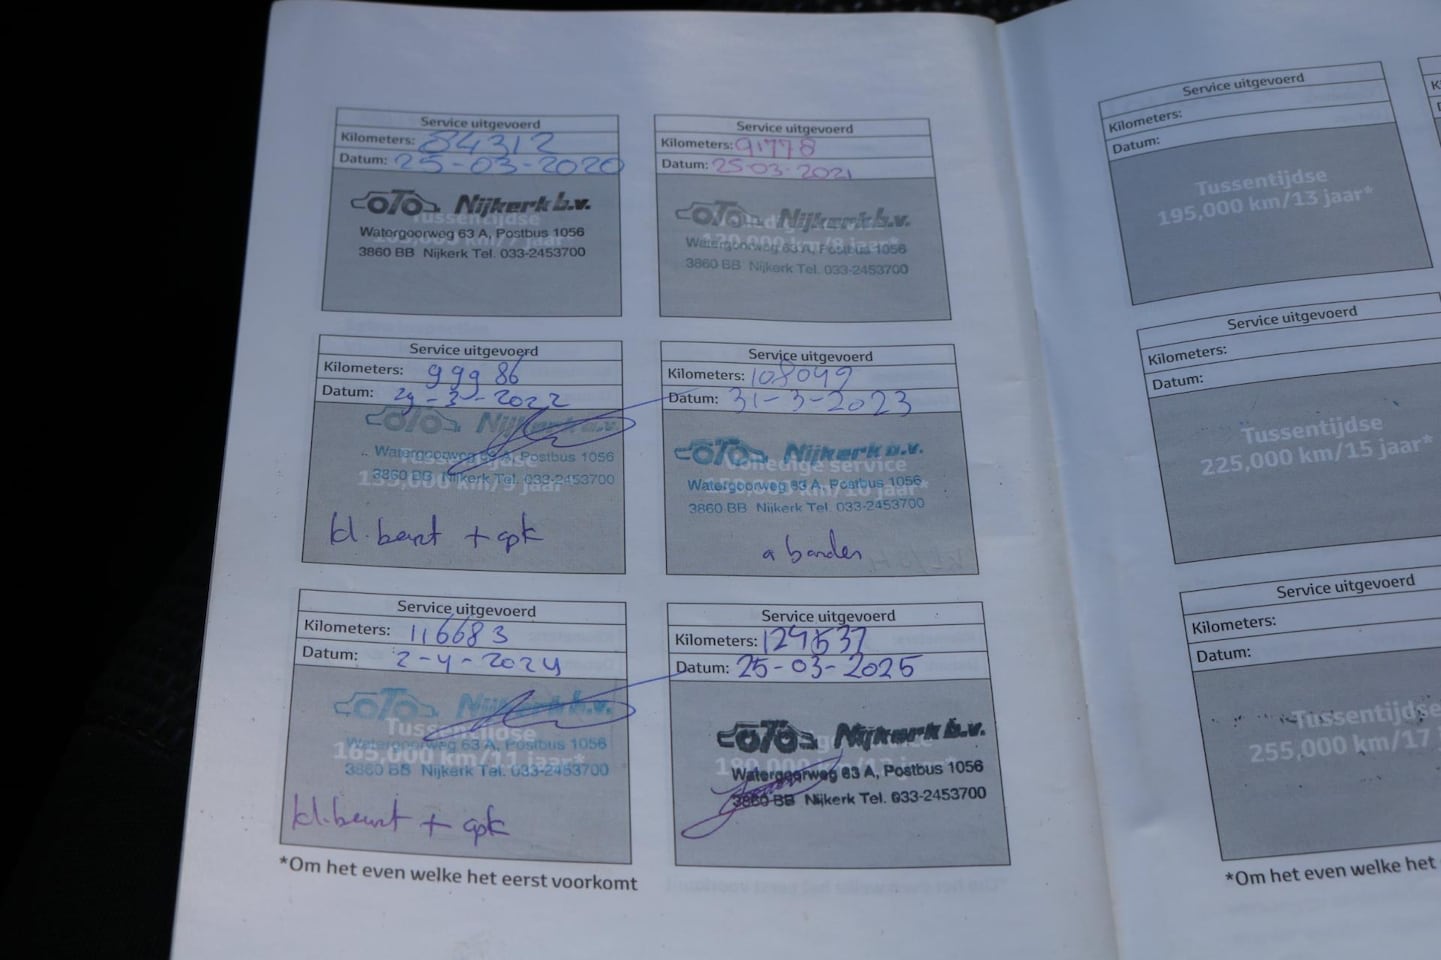 Service uitgevoerd
Kilometers: 84312
Datum: 25-03-2020
OTO Nijkerk b.v.
Tussentijdse
Watergoorweg 63 A, Postbus 1056
3860 BB Nijkerk Tel. 033-2453700
Service uitgevoerd
Kilometers: 91778
Datum: 25-03-2021
OTO Nijkerk b.v.
Watergoorweg 63 A, Postbus 1056
3860 BB Nijkerk Tel. 033-2453700
Service uitgevoerd
Kilometers: 99986
Datum: 29-3-2022
OTO Nijkerk b.v.
Watergoorweg 63 A, Postbus 1056
3860 BB Nijkerk Tel. 033-2453700
kl. beurt + apk
Service uitgevoerd
Kilometers: 108049
Datum: 31-3-2023
OTO Nijkerk b.v.
Volledige service
Watergoorweg 63 A, Postbus 1056
3860 BB Nijkerk Tel. 033-2453700
banden
Service uitgevoerd
Kilometers: 116683
Datum: 2-4-2024
OTO Nijkerk b.v.
Tussentijdse
Watergoorweg 63 A, Postbus 1056
165,000 km/11 jaar*
3860 BB Nijkerk Tel. 033-2453700
kl. beurt + apk
Service uitgevoerd
Kilometers: 124537
Datum: 25-03-2025
OTO Nijkerk b.v.
Watergoorweg 63 A, Postbus 1056
3860 BB Nijkerk Tel. 033-2453700
*Om het even welke het eerst voorkomt
Service uitgevoerd
Kilometers:
Datum:
Tussentijdse
195,000 km/13 jaar*
Service uitgevoerd
Kilometers:
Datum:
Tussentijdse
225,000 km/15 jaar*
Service uitgevoerd
Kilometers:
Datum:
Tussentijdse
255,000 km/17
*Om het even welke het